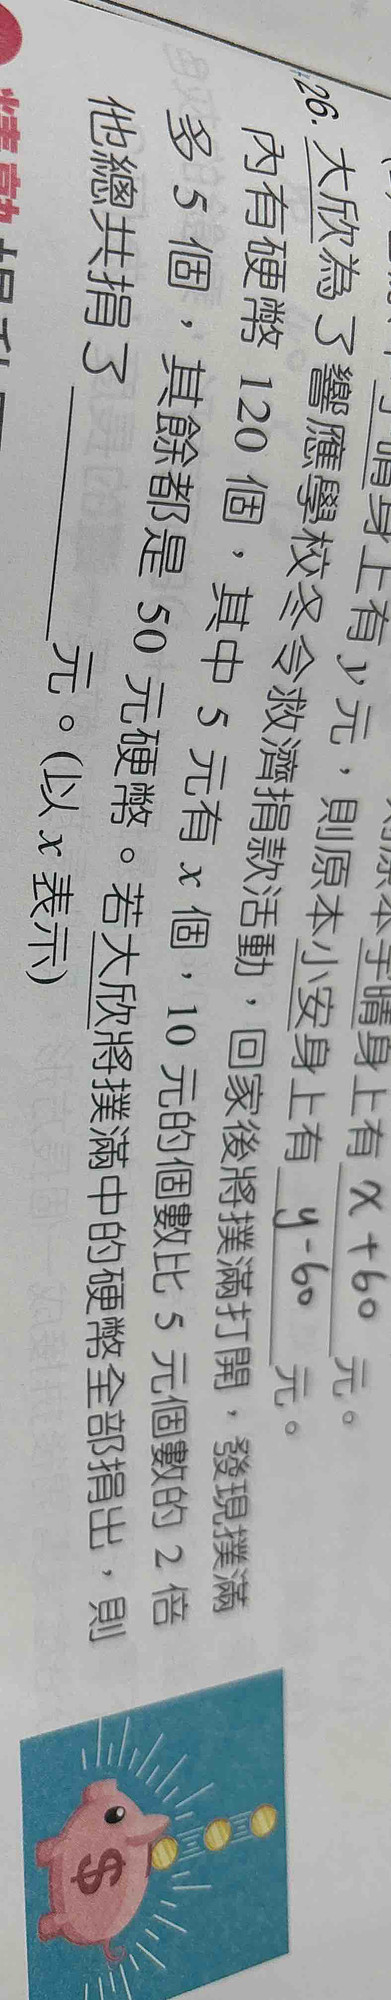 身上有 x+60 元。
身上有 y 元，則原本小安身上有 y-60 元。
26. 大欣為了響應學校冬令救濟捐款活動，回家後將撲滿打開，發現撲滿
內有硬幣 120 個，其中 5 元有 x 個，10 元的個數比 5 元個數的 2 倍
多 5 個，其餘都是 50 元硬幣。若大欣將撲滿中的硬幣全部捐出，則
他總共捐了 元。(以 x 表示)
$